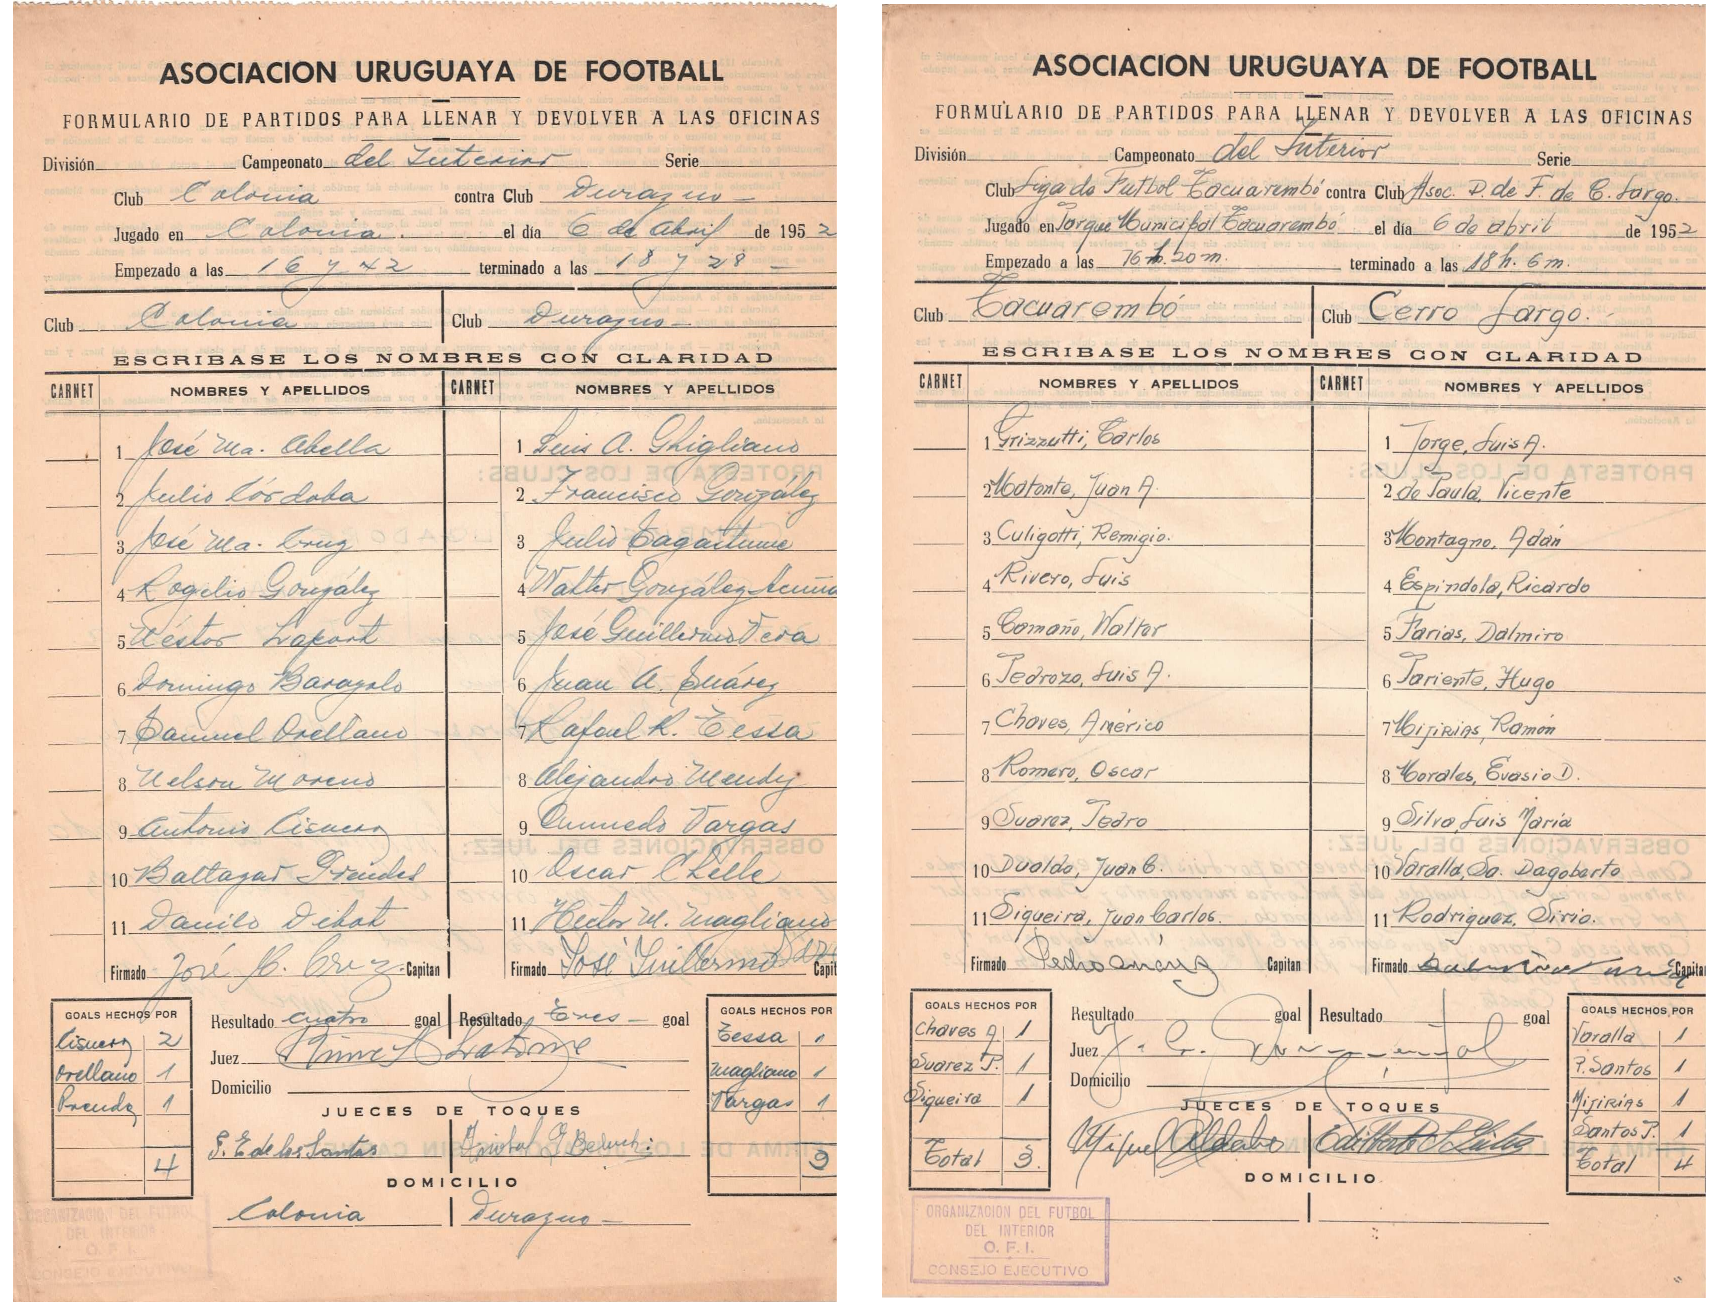 ASOCIACION URUGUAYA DE FOOTBALL
FORMULARIO DE PARTIDOS PARA LLENAR Y DEVOLVER A LAS OFICINAS
División Campeonato del Interior Serie
Club Colonia contra Club Durazno
Jugado en Colonia el día 6 de Abril de 1952
Empezado a las 16 y 42 terminado a las 18 y 28
Club Colonia Club Durazno
ESCRIBASE LOS NOMBRES CON CLARIDAD
CARNET NOMBRES Y APELLIDOS CARNET NOMBRES Y APELLIDOS
1 José Ma. Abella 1 Luis A. Ghigliano
2 Julio Córdoba 2 Francisco González
3 José Ma. Cruz 3 Julio
4 Rogelio González 4 Walter González Acuña
5 Néstor Laport 5 José Guillermo Vera
6 Domingo 6 Juan A. Suárez
7 Samuel Orellano 7 Rafael R. Tessa
8 Nelson Moreno 8 Alejandro Mendy
9 Antonio 9 Vargas
10 Baltazar Prendes 10 Oscar Chelle
11 Danilo 11 Héctor M. Magliano
Firmado José M. Cruz Capitan Firmado José Guillermo Capit
GOALS HECHOS POR Resultado cuatro goal Resultado Tres goal GOALS HECHOS POR
2 Juez Tessa 1
Orellano 1 Domicilio Magliano 1
Prendez 1 JUECES DE TOQUES Vargas 1
4 de los Santos 3
DOMICILIO
Colonia Durazno
ORGANIZACION DEL FUTBOL
DEL INTERIOR
O. F. I.
CONSEJO EJECUTIVO
ASOCIACION URUGUAYA DE FOOTBALL
FORMULARIO DE PARTIDOS PARA LLENAR Y DEVOLVER A LAS OFICINAS
División Campeonato del Interior Serie
Club Liga de Futbol Tacuarembó contra Club Asoc. D. de F. de C. Largo.
Jugado en Parque Municipal Tacuarembó el día 6 de abril de 1952
Empezado a las 16 h. 20 m. terminado a las 18 h. 6 m.
Club Tacuarembó Club Cerro Largo.
ESCRIBASE LOS NOMBRES CON CLARIDAD
CARNET NOMBRES Y APELLIDOS CARNET NOMBRES Y APELLIDOS
1 Grizzutti, Carlos 1 Jorge, Luis A.
2 Matonte, Juan A. 2 de Paula, Vicente
3 Culigotti, Remigio. 3 Montagno, Adán
4 Rivero, Luis 4 Espindola, Ricardo
5 Camaño, Walter 5 Farías, Dalmiro
6 Pedrozo, Luis A. 6 Pariente, Hugo
7 Chaves, Américo 7 Mijirias, Ramón
8 Romero, Oscar 8 Morales, Evasio D.
9 Suarez, Pedro 9 Silva, Luis María
10 Dualde, Juan C. 10 Varalla, Sa. Dagoberto
11 Siqueira, Juan Carlos. 11 Rodriguez, Sirio.
Firmado Pedro Capitan Firmado Capitan
GOALS HECHOS POR Resultado goal Resultado goal GOALS HECHOS POR
Chaves A. 1 Juez Varalla 1
Suarez P. 1 Domicilio P. Santos 1
Siqueira 1 JUECES DE TOQUES Mijirias 1
Miguel Santos P. 1
Total 3. Total 4
DOMICILIO
ORGANIZACION DEL FUTBOL
DEL INTERIOR
O. F. I.
CONSEJO EJECUTIVO